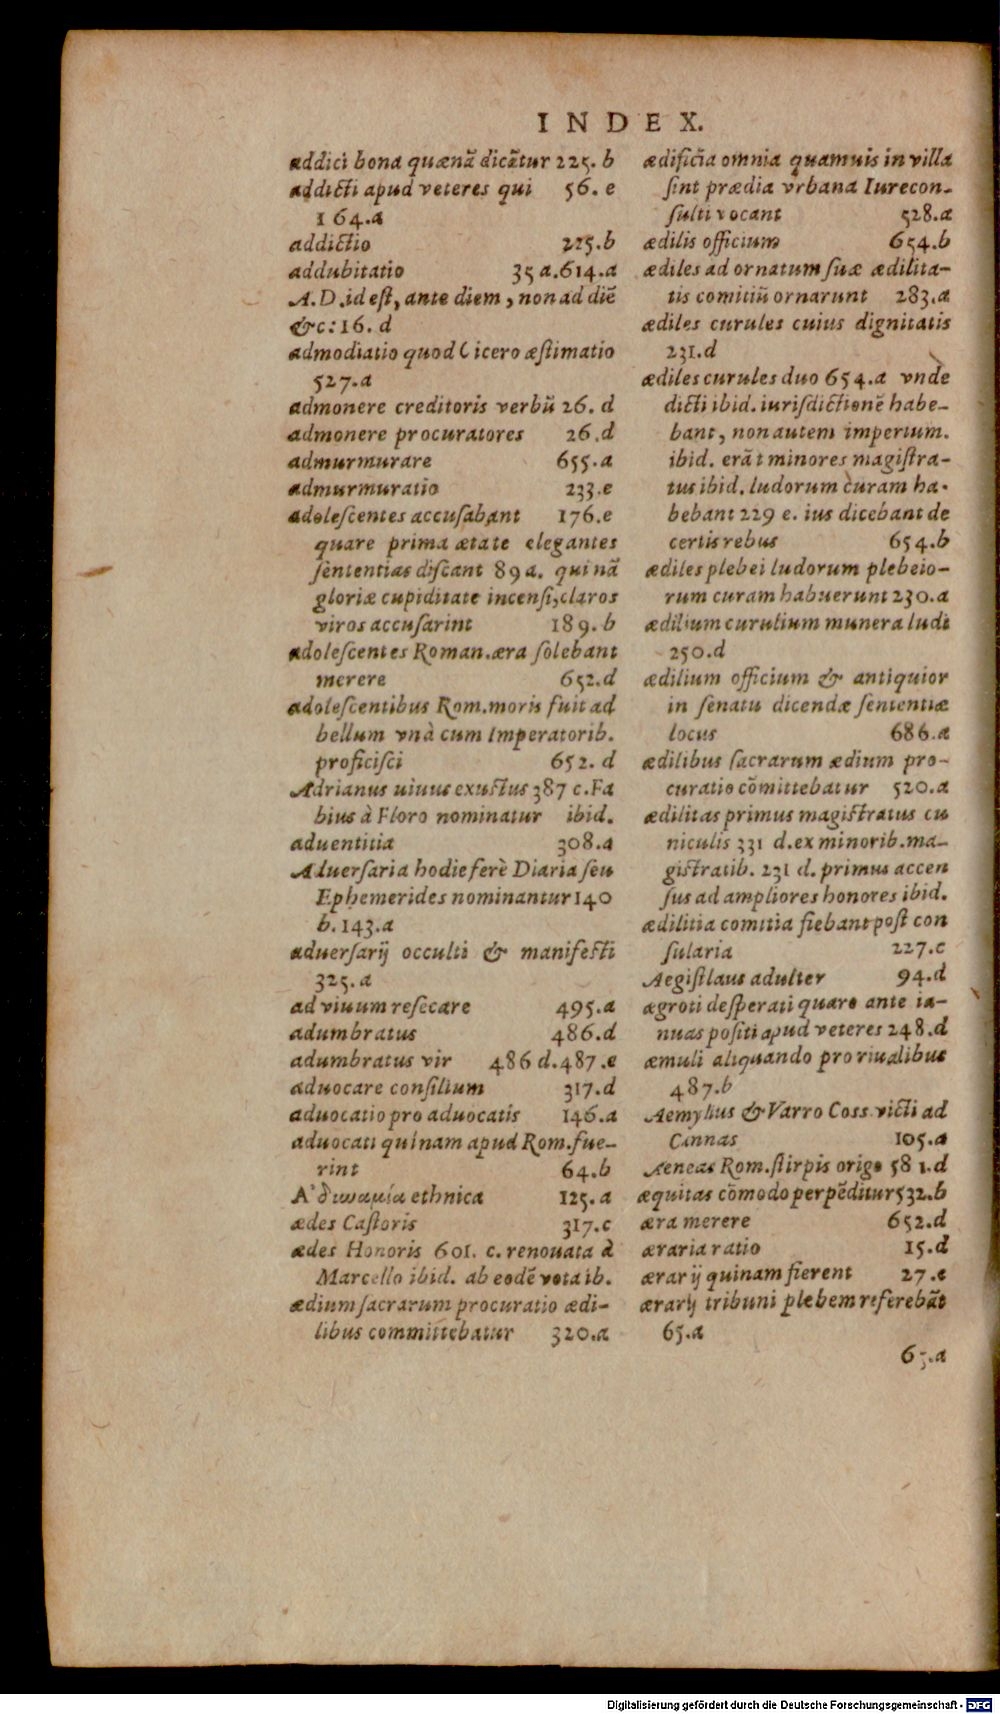 INDEX.
addici bona quænã dicãtur 225. b
addicti apud veteres qui 56. e
164.a
addictio 225.b
addubitatio 35 a.614.a
A.D.id eſt, ante diem, non ad diẽ
&c: 16. d
admodiatio quod Cicero æſtimatio
527.a
admonere creditoris verbũ 26. d
admonere procuratores 26.d
admurmurare 655.a
admurmuratio 233.e
adoleſcentes accuſabant 176.e
quare prima ætate elegantes
ſententias diſcant 89 a. qui nã
gloriæ cupiditate incenſi, claros
viros accuſarint 189. b
adoleſcentes Roman.æra ſolebant
merere 652.d
adoleſcentibus Rom.moris fuit ad
bellum vnà cum Imperatorib.
proficiſci 652. d
Adrianus uiuus exustus 387 c.Fa
bius à Floro nominatur ibid.
aduentitia 308.a
Aduerſaria hodie ferè Diaria ſeu
Ephemerides nominantur 140
b. 143.a
aduerſarij occulti & manifesti
325.a
ad viuum reſecare 495.a
adumbratus 486.d
adumbratus vir 486 d.487.e
aduocare conſilium 317.d
aduocatio pro aduocatis 146.a
aduocati quinam apud Rom.fue-
rint 64.b
Ἀδυναμία ethnica 125.a
ædes Caſtoris 317.c
ædes Honoris 601. c. renouata à
Marcello ibid. ab eodẽ vota ib.
ædium ſacrarum procuratio ædi-
libus committebatur 320.a
ædificia omnia quamuis in villa
ſint prædia vrbana Iurecon-
ſulti vocant 528.a
ædilis officium 654.b
ædiles ad ornatum ſuæ ædilita-
tis comitiũ ornarunt 283.a
ædiles curules cuius dignitatis
231.d
ædiles curules duo 654.a vnde
dicti ibid. iuriſdictionẽ habe-
bant, non autem imperium.
ibid. erãt minores magiſtra-
tus ibid. ludorum curam ha-
bebant 229 e. ius dicebant de
certis rebus 654.b
ædiles plebei ludorum plebeio-
rum curam habuerunt 230.a
ædilium curulium munera ludi
250.d
ædilium officium & antiquior
in ſenatu dicendæ ſententiæ
locus 686.a
ædilibus ſacrarum ædium pro-
curatio cõmittebatur 520.a
ædilitas primus magistratus cu
niculis 331 d.ex minorib.ma-
gistratib. 231 d. primus accen
ſus ad ampliores honores ibid.
ædilitia comitia fiebant poſt con
ſularia 227.c
Aegiſtlaus adulter 94.d
ægroti deſperati quare ante ia-
nuas poſiti apud veteres 248.d
æmuli aliquando pro riualibus
487.b
Aemylius & Varro Coss victi ad
Cannas 105.a
Aeneas Rom.ſtirpis origo 581.d
æquitas cõmodo perpẽditur 532.b
æra merere 652.d
æraria ratio 15.d
ærarij quinam fierent 27.e
ærarij tribuni plebem referebãt
65.a
65.a
Digitalisierung gefördert durch die Deutsche Forschungsgemeinschaft - DFG